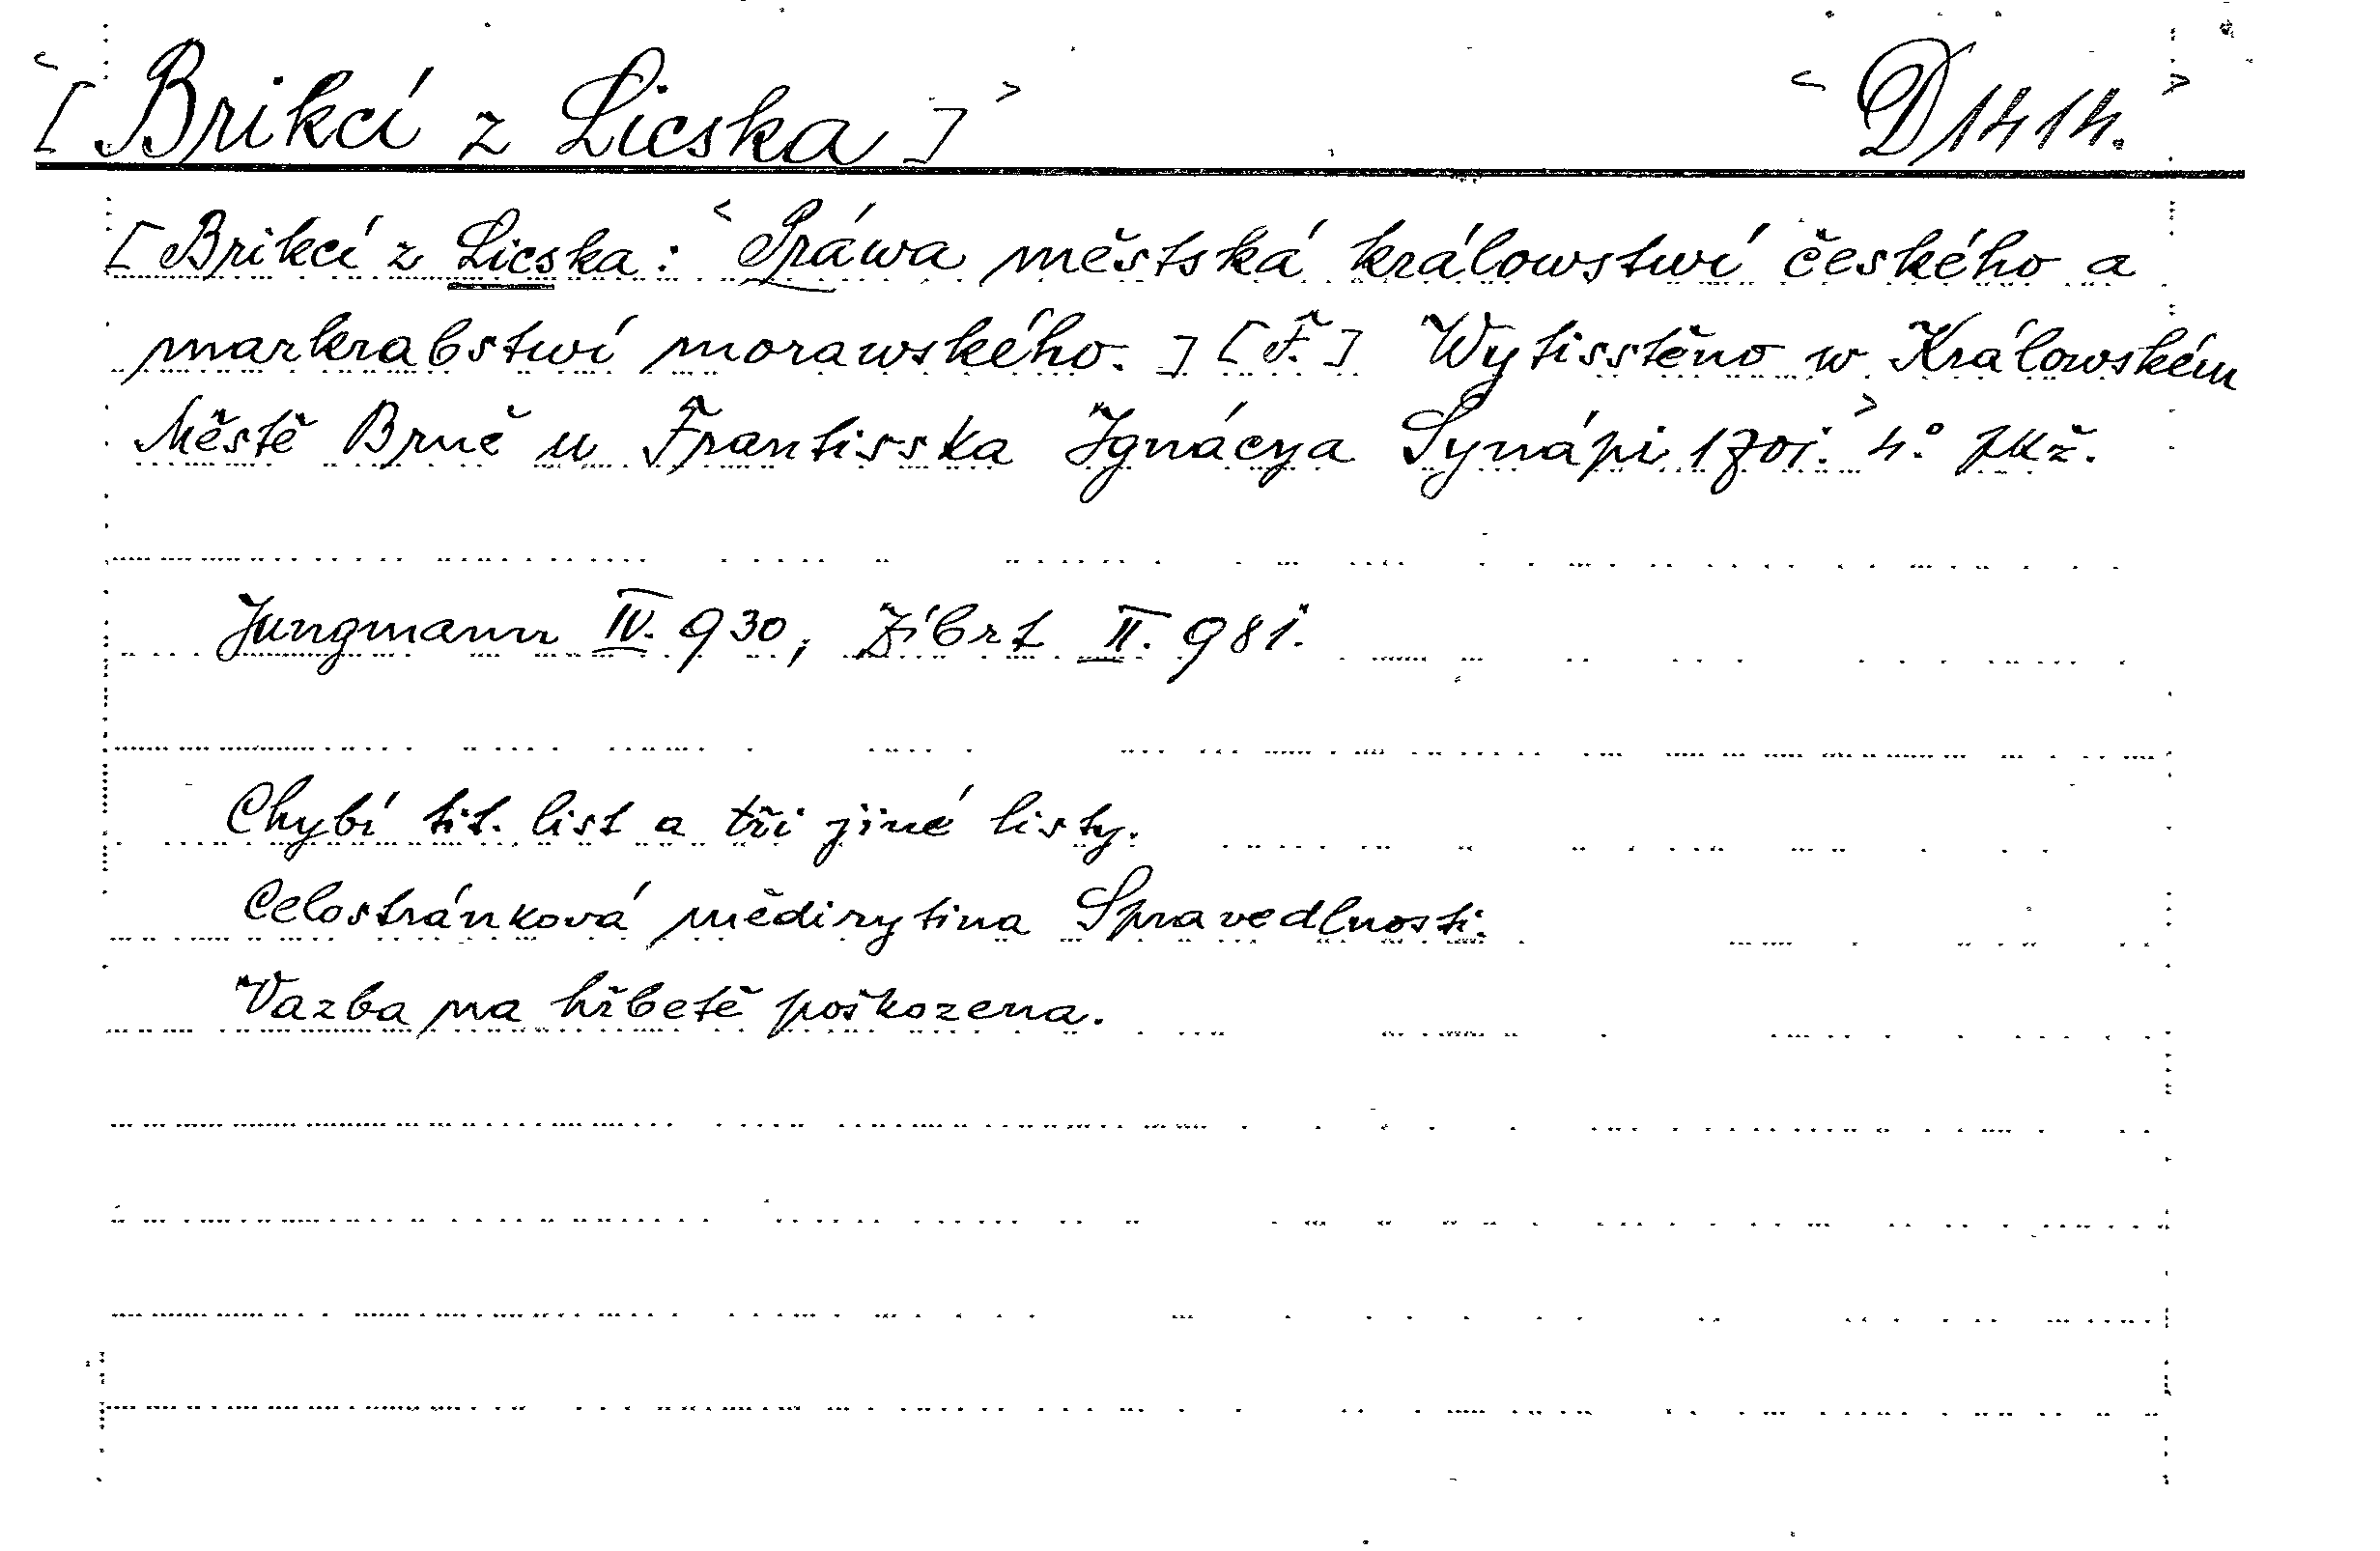 <[Brikcí z Licska]> <D 1414.>
[Brikcí z Licska: <Práwa městská králowstwí českého a
markrabstwí morawského.] [F.] Wytisstěno w Králowském
Městě Brně u Frantisska Ignácya Synápi 1701.> 4° Kž.
Jungmann IV. 930, Zíbrt II. 981.
Chybí tit. list a tři jiné listy.
Celostránková mědirytina Spravedlnosti.
Vazba na hřbetě poškozena.